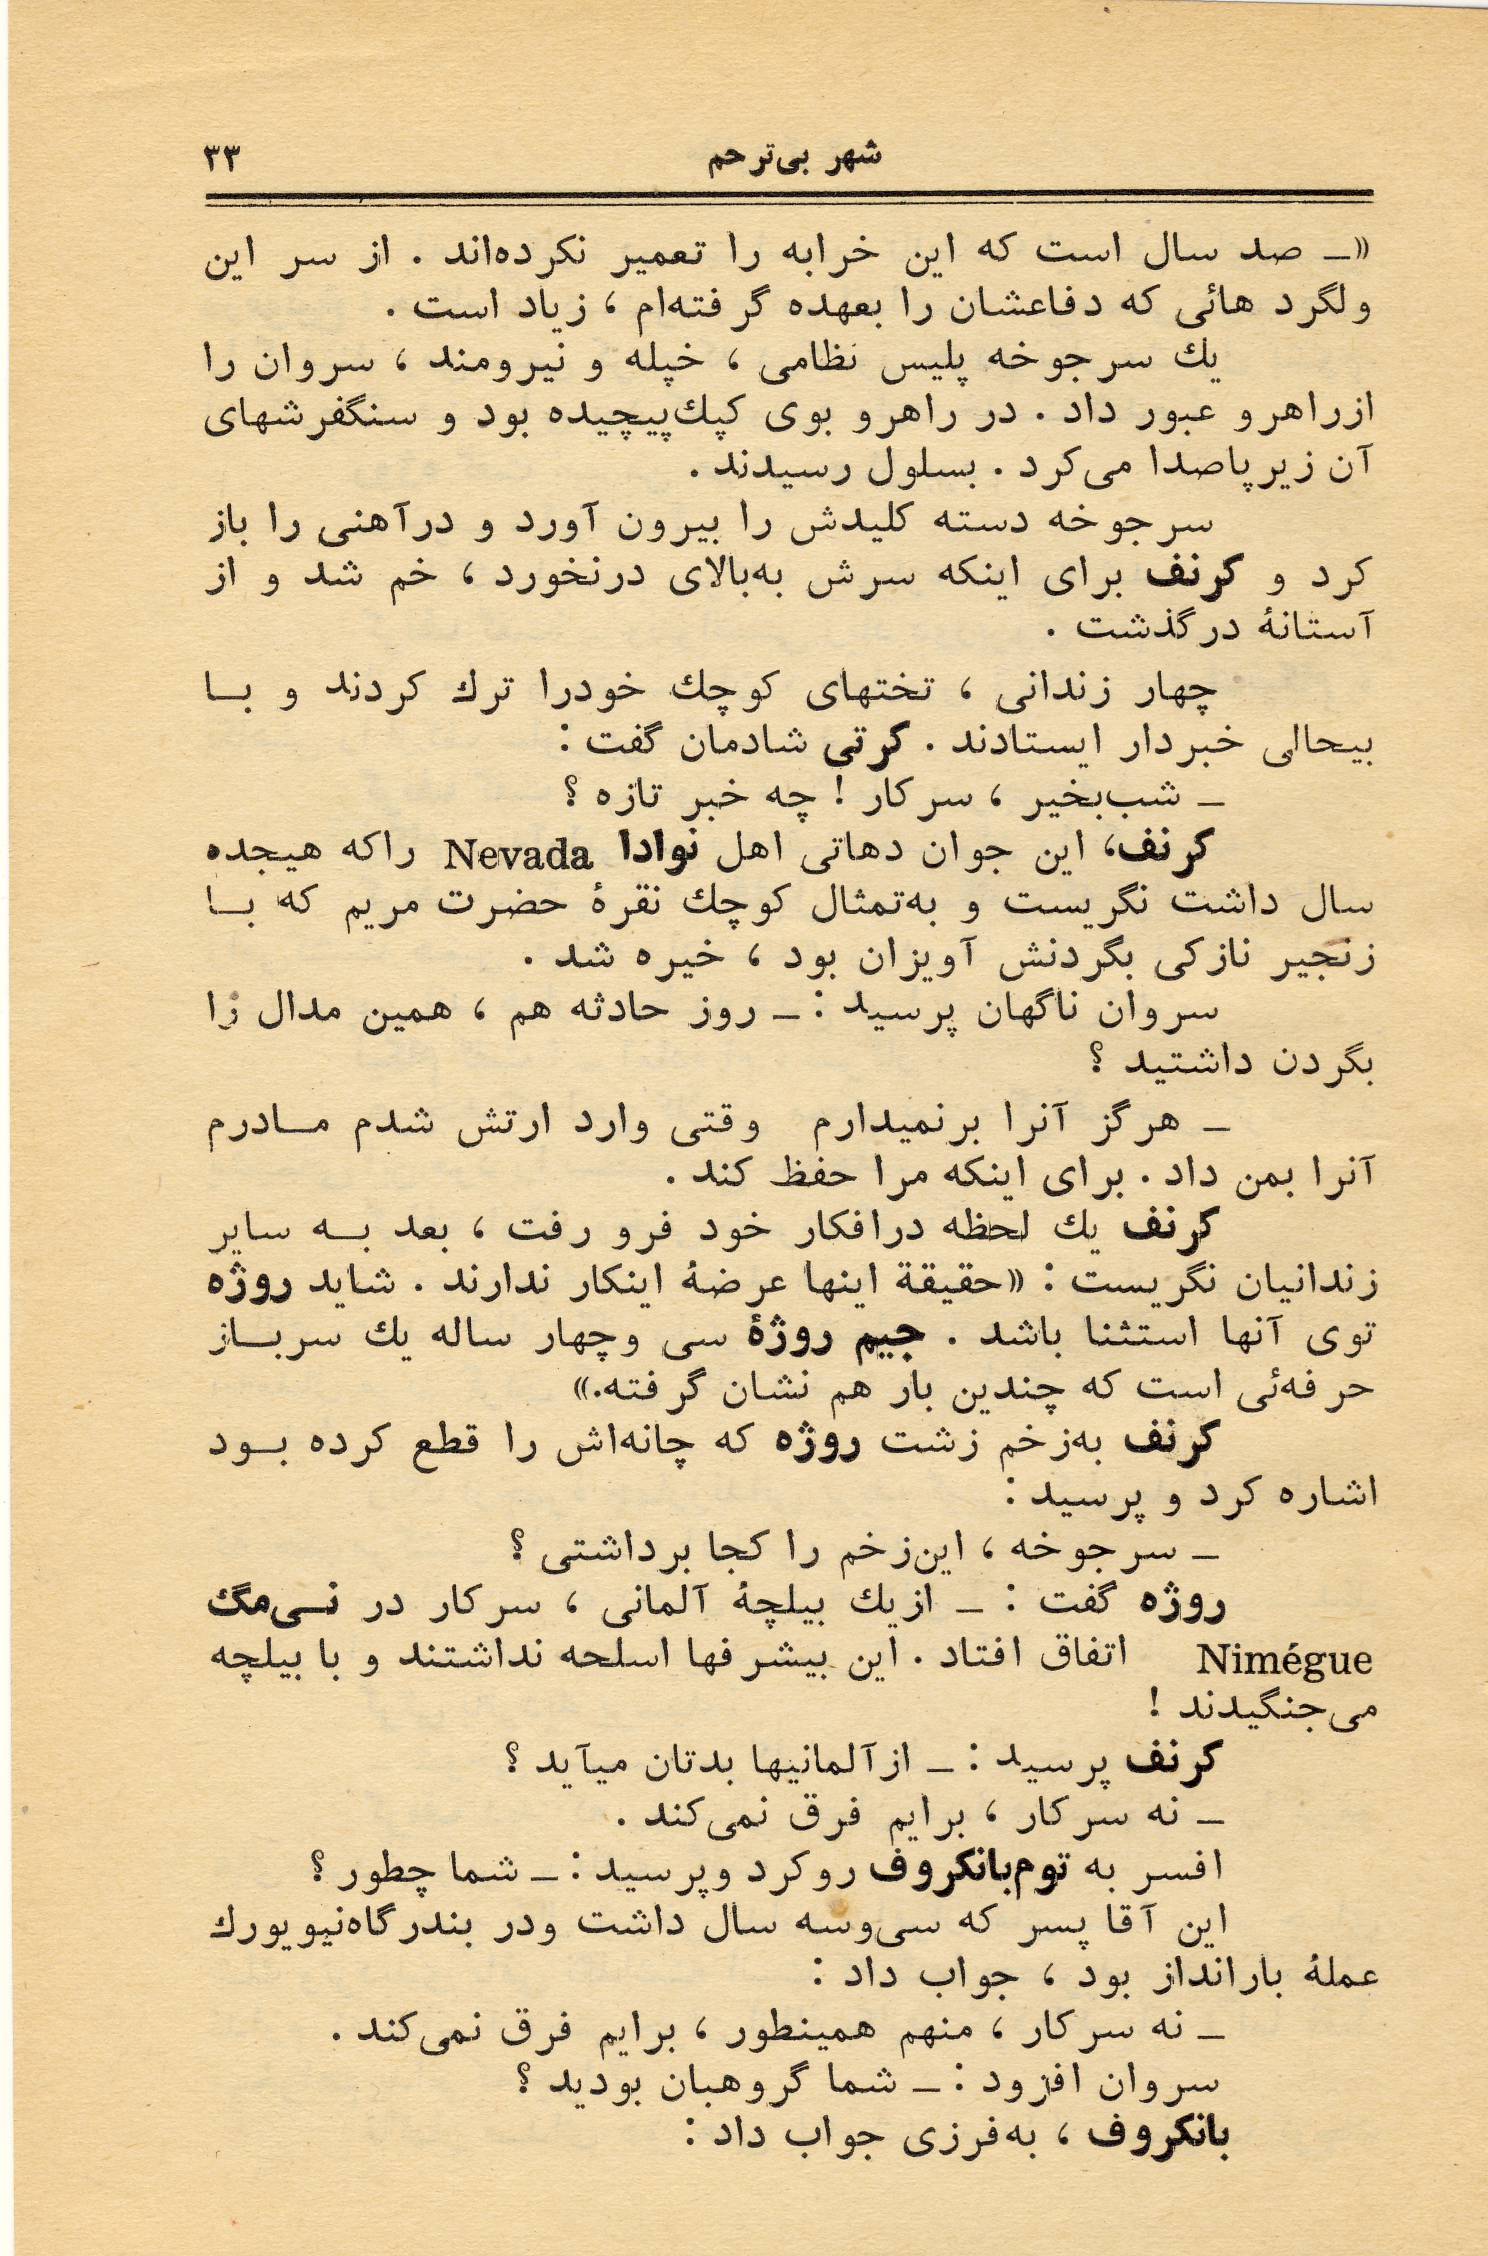 شهر بی‌ترحم ۳۳
«ـ صد سال است که این خرابه را تعمیر نکرده‌اند . از سر این
ولگرد هائی که دفاعشان را بعهده گرفته‌ام ، زیاد است .
یك سرجوخه پلیس نظامی ، خپله و نیرومند ، سروان را
ازراهرو عبور داد . در راهرو بوی کپك‌پیچیده بود و سنگفرشهای
آن زیرپاصدا می‌کرد . بسلول رسیدند .
سرجوخه دسته کلیدش را بیرون آورد و درآهنی را باز
کرد و کرنف برای اینکه سرش به‌بالای درنخورد ، خم شد و از
آستانهٔ درگذشت .
چهار زندانی ، تختهای کوچك خودرا ترك کردند و بـا
بیحالی خبردار ایستادند . کرتی شادمان گفت :
ـ شب‌بخیر ، سرکار ! چه خبر تازه ؟
کرنف، این جوان دهاتی اهل نوادا Nevada راکه هیجده
سال داشت نگریست و به‌تمثال کوچك نقرهٔ حضرت مریم که بـا
زنجیر نازکی بگردنش آویزان بود ، خیره شد .
سروان ناگهان پرسید : ـ روز حادثه هم ، همین مدال را
بگردن داشتید ؟
ـ هرگز آنرا برنمیدارم وقتی وارد ارتش شدم مـادرم
آنرا بمن داد . برای اینکه مرا حفظ کند .
کرنف یك لحظه درافکار خود فرو رفت ، بعد بـه سایر
زندانیان نگریست : «حقیقة اینها عرضهٔ اینکار ندارند . شاید روژه
توی آنها استثنا باشد . جیم روژهٔ سی وچهار ساله یك سربـاز
حرفه‌ئی است که چندین بار هم نشان گرفته.»
کرنف به‌زخم زشت روژه که چانه‌اش را قطع کرده بـود
اشاره کرد و پرسید :
ـ سرجوخه ، این‌زخم را کجا برداشتی ؟
روژه گفت : ـ ازیك بیلچهٔ آلمانی ، سرکار در نـی‌مگ
Nimégue اتفاق افتاد . این بیشرفها اسلحه نداشتند و با بیلچه
می‌جنگیدند !
کرنف پرسید : ـ ازآلمانیها بدتان میآید ؟
ـ نه سرکار ، برایم فرق نمی‌کند .
افسر به توم‌بانکروف روکرد وپرسید : ـ شما چطور ؟
این آقا پسر که سی‌وسه سال داشت ودر بندرگاه‌نیویورك
عملهٔ بارانداز بود ، جواب داد :
ـ نه سرکار ، منهم همینطور ، برایم فرق نمی‌کند .
سروان افزود : ـ شما گروهبان بودید ؟
بانکروف ، به‌فرزی جواب داد :